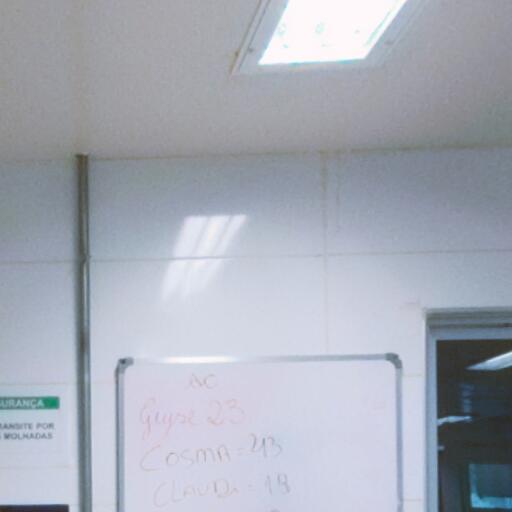 URANÇA
RANSITE POR
MOLHADAS
AC
Geyse 23
COSMA = 43
CLAUDi = 18